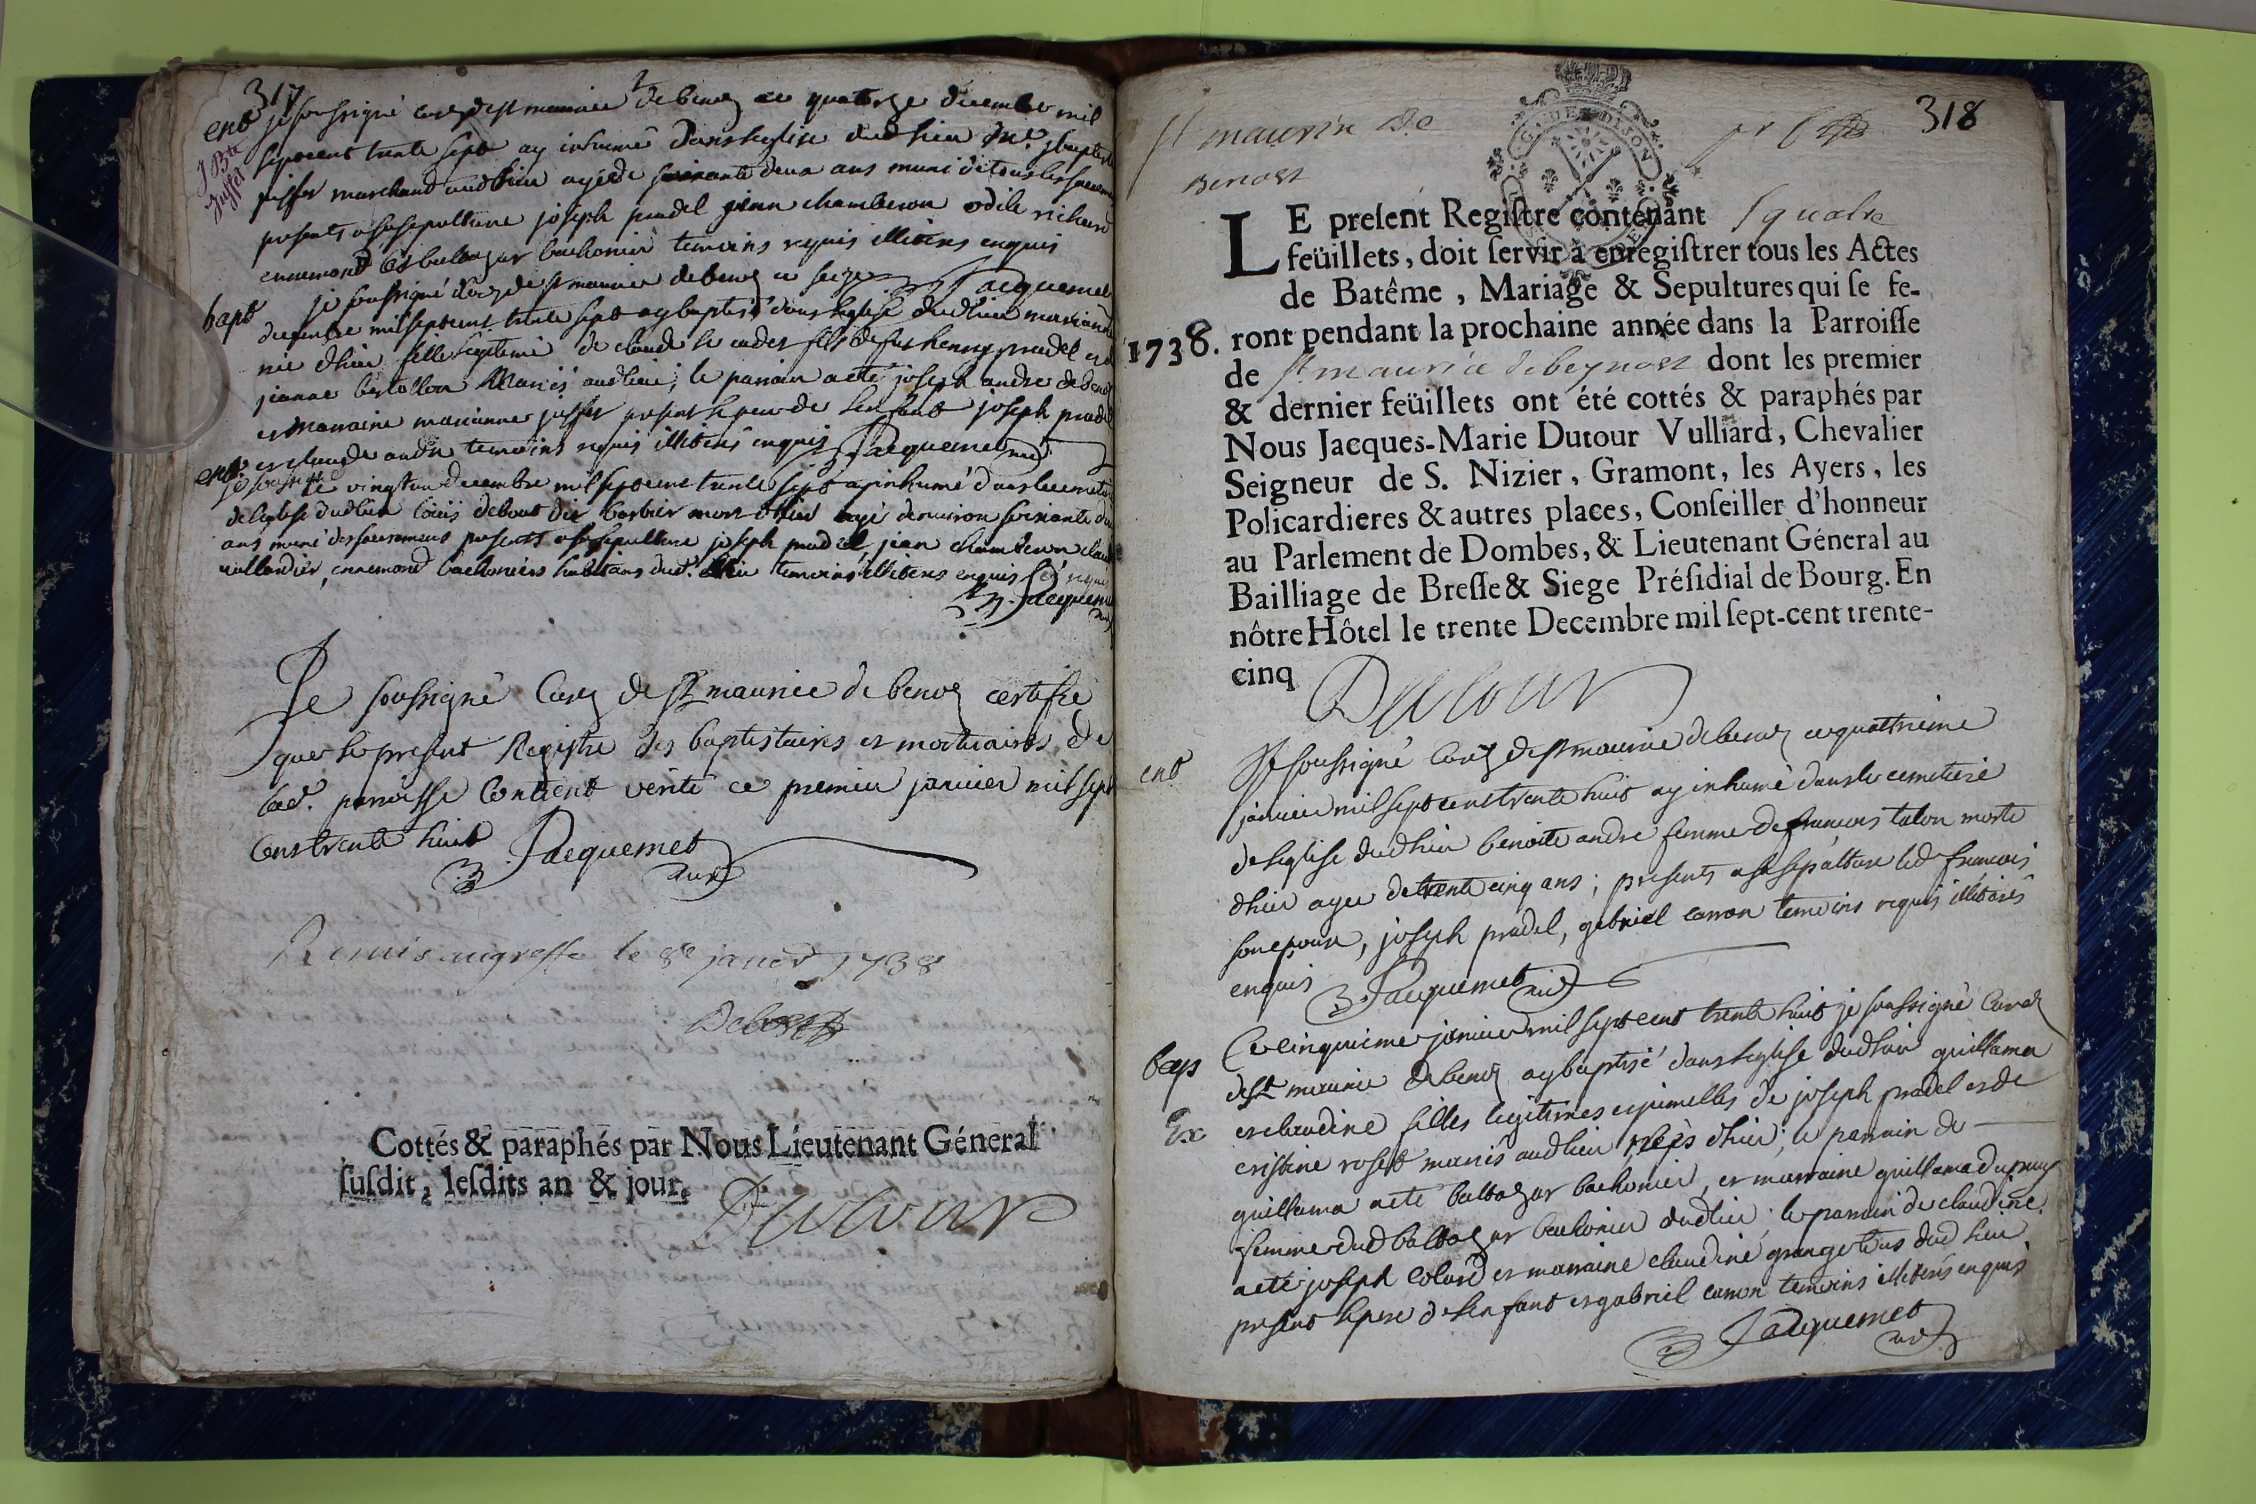 317
ent je soussigné curé de st maurice de benoz ce quatorze decembre mil
J Bte
Juffet
septcent trente sept ay inhumé dans leglise dud lieu Me. jbaptiste
juffet marchand aud lieu agé de soixante deux ans muni de tous les sacrem
presents a sa sepulture joseph pradel jean chamberon odile richard
ennemond et baltazar bachonier temoins requis illiteres enquis
Jacquemet
bapt je soussigné curé de st maurice de benoz ce seize
decembre mil septcent trente sept ay baptisé dans leglise dud lieu marianne
née dhier fille legitime de claude le cadet fils de feu henry pradel et de
jeanne bertollon mariés aud lieu; le parain a eté joseph andre de benoz
et maraine marianne juffet present le pere de lenfant joseph pradel
et claude andre temoins requis illiteres enquis Jacquemet curé
ent je soussigné
le vingt un decembre mil septcent trente sept ay inhumé dans le cemetiere
de leglise dud lieu loüis debout dit barbier mort dhier agé denviron soixante dix
ans muni des sacremens presents a sa sepulture joseph pradel, jean chamberon claude
vullandier, ennemond bachonier habitans dud. lieu temoins illiteres enquis et requis
Jacquemet
curé
Je soussigné Curé de St maurice de benoz certifie
que le present Registre des baptistaires et mortuaires de
lad. paroisse Contient verité ce premier janvier mil sept
cens trente huit Jacquemet
curé
Remis au greffe le 8e janvr 1738
Cottés & paraphés par Nous Lieutenant Géneral
susdit, lesdits an & jour. Dutour
st maurice de
Benost
318
LE present Registre contenant quatre
feüillets, doit servir à enregistrer tous les Actes
de Batême, Mariage & Sepultures qui se fe-
1738. ront pendant la prochaine année dans la Parroisse
de st maurice de beynost dont les premier
& dernier feüillets ont été cottés & paraphés par
Nous Jacques-Marie Dutour Vulliard, Chevalier
Seigneur de S. Nizier, Gramont, les Ayers, les
Policardieres & autres places, Conseiller d'honneur
au Parlement de Dombes, & Lieutenant Géneral au
Bailliage de Bresse & Siege Présidial de Bourg. En
nôtre Hôtel le trente Decembre mil sept-cent trente-
cinq
Dutour
ent Je soussigné Curé de st maurice de benoz ce quattrieme
janvier mil sept cens trente huit ay inhumé dans le cemetiere
de leglise dud lieu benoite andre femme de francois talon morte
dhier agee de trente cinq ans; presents a sa sepulture led francois
son epoux, joseph pradel, gabriel carron temoins requis illiterés
enquis Jacquemet curé
bap Ce cinquieme janvier mil sept cent trente huit je soussigné Curé
de St maurice de benoz ay baptisé dans leglise dud lieu guillama
Ex et claudine filles legitimes et jumelles de joseph pradel et de
cristine roset mariés aud lieu neés dhier; le parrain de
guillama a eté baltazar bachonier, et marraine guillama dupuy
femme dud baltazar bachonier dud lieu; le parrain de claudine
a eté joseph colard et marraine claudine grange tous dud lieu
present le pere de lenfant et gabriel carron temoins illiteres enquis
Jacquemet
curé